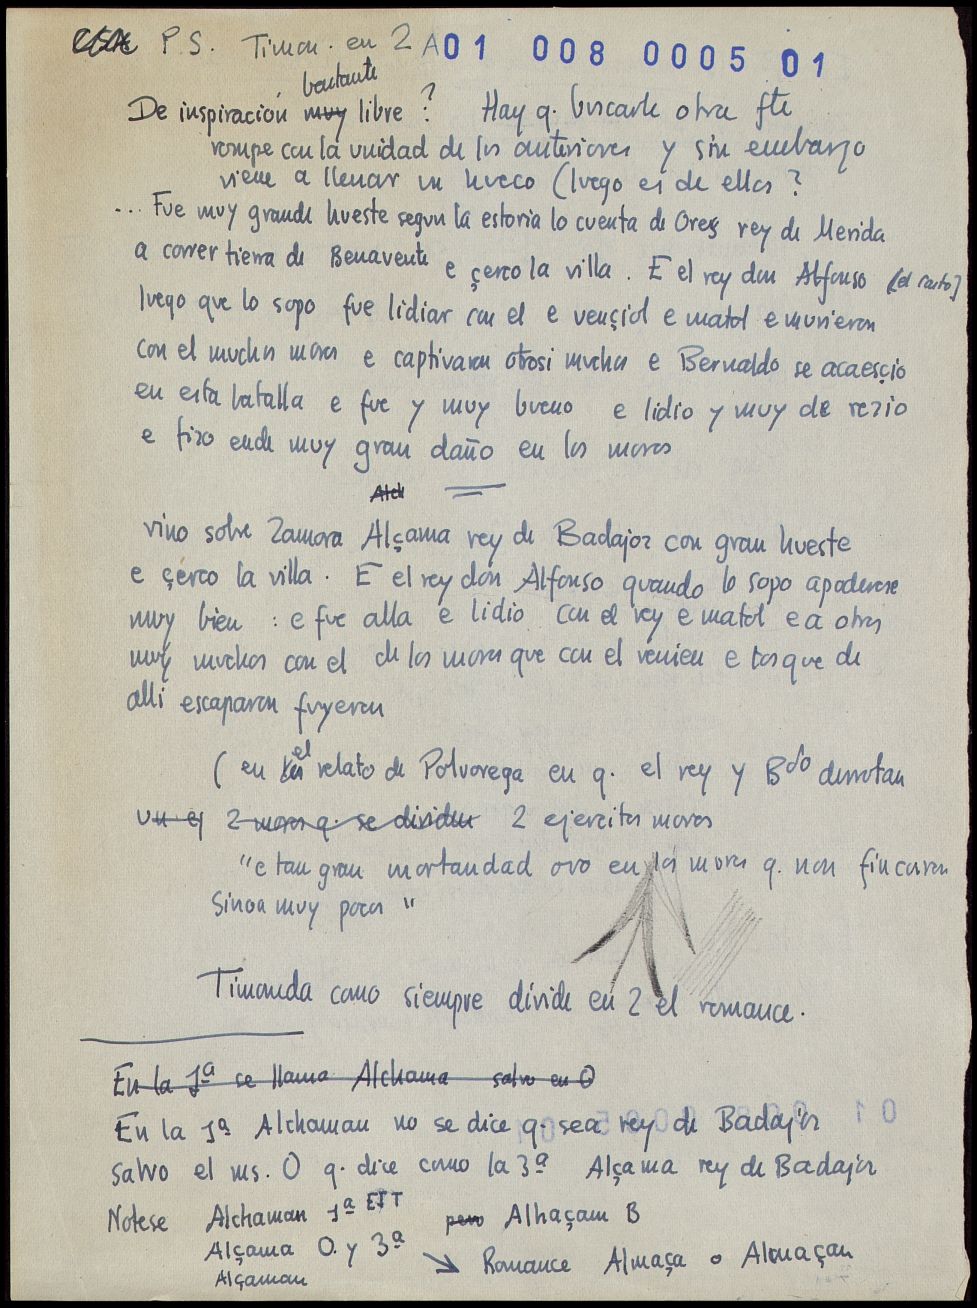 P.S. Timon. en 2 A01 008 0005 01
bastante
De inspiración muy libre? Hay q. buscarle otra fte
rompe con la unidad de los anteriores y sin embargo
viene a llenar un hueco (luego es de ellos?
... Fue muy grande hueste segun la estoria lo cuenta de Ores rey de Merida
a correr tierra de Benavente e çerco la villa. E el rey don Alfonso (el casto)
luego que lo sopo fue lidiar con el e vençiol e matol e murieron
con el muchos moros e captivaron otrosi muchos e Bernaldo se acaesçio
en esta batalla e fue y muy bueno e lidio y muy de rezio
e fizo ende muy gran daño en los moros
vino sobre Zamora Alçama rey de Badajoz con gran hueste
e çerco la villa. E el rey don Alfonso quando lo sopo apoderose
muy bien: e fue alla e lidio con el rey e matol e a otros
muy muchos con el de los moros que con el venien e los que de
alli escaparon fuyeron
(en el relato de Polvorega en q. el rey y Bdo derrotan
un ej 2 moros q. se dividen 2 ejercitos moros
"e tan gran mortandad ovo en los moros q. non fincaron
sinon muy pocos"
Timoneda como siempre divide en 2 el romance.
En la 1ª se llama Alchama salvo en O
En la 1ª Alchaman no se dice q. sea rey de Badajoz
salvo el ms. O q. dice como la 3ª Alçama rey de Badajoz
Notese Alchaman 1ª EIT pero Alhaçam B
Alçama O. y 3ª
Romance Almaça o Almaçan
Alçaman